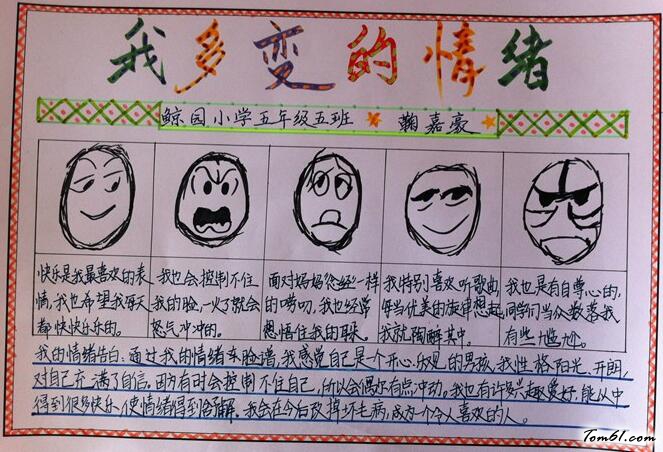 我多变的情绪
鲸园小学五年级五班 鞠嘉豪
快乐是我最喜欢的表
情,我也希望我每天
都快快乐乐的。
我也会控制不住
我的脸,一火了就会
怒气冲冲的。
面对妈妈“念经”一样
的唠叨,我也经常
想捂住我的耳朵。
我特别喜欢听歌曲,
每当优美的旋律想起,
我就陶醉其中。
我也是有自尊心的,
同学们当众数落我
有些尴尬。
我的情绪告白:通过我的情绪车脸谱,我感觉自己是个开心、乐观的男孩,我性格阳光、开朗,
对自己充满了自信。因为有时会控制不住自己,所以会偶尔有点冲动。我也有许多兴趣爱好,能从中
得到很多快乐,使情绪得到缓解。我会在今后改掉坏毛病,成为个令人喜欢的人。
Tom61.com